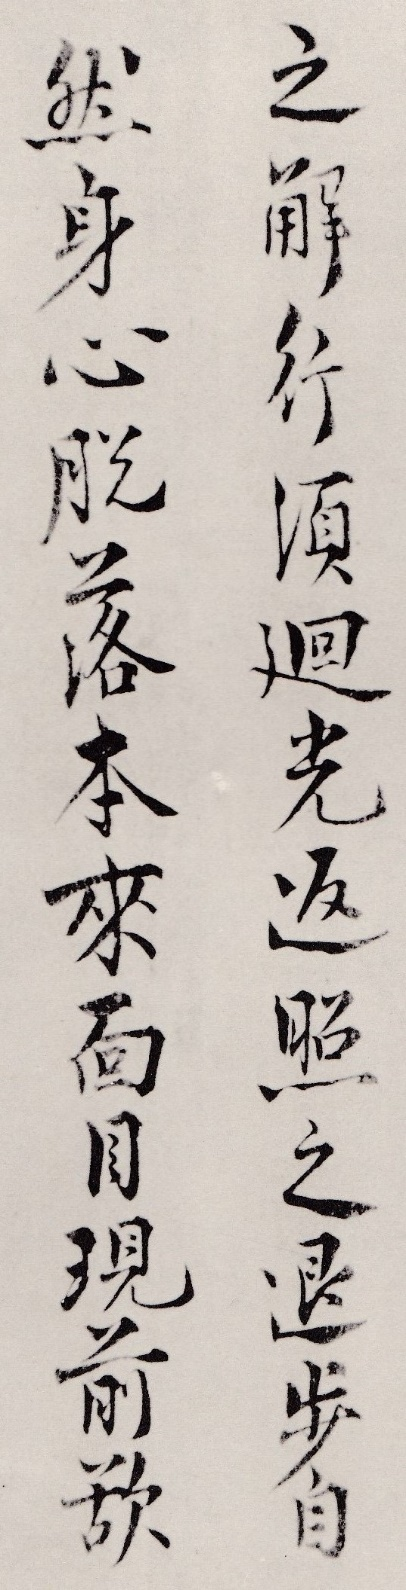 之解行須廻光返照之退步自
然身心脱落本來面目現前欲